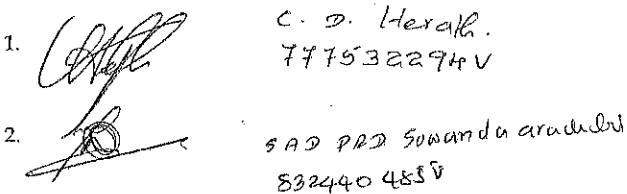 1.
C. D. Herath.
777532294V
2.
SAD PRD Suwandu arachchi
832440485V